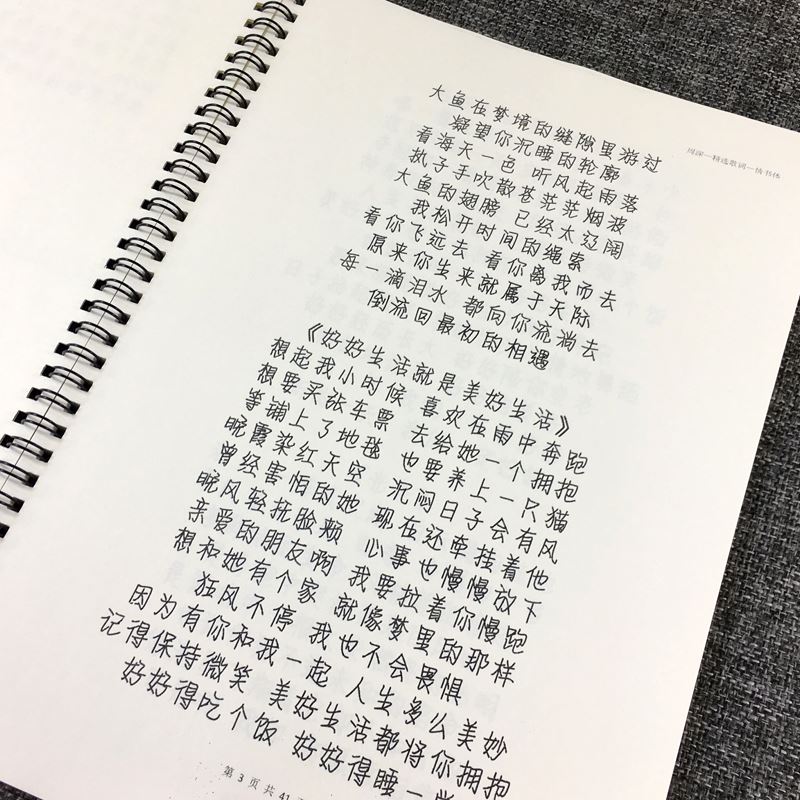 周深—精选歌词—情书体
大鱼在梦境的缝隙里游过
凝望你沉睡的轮廓
看海天一色 听风起雨落
执子手吹散苍茫茫烟波
大鱼的翅膀 已经太辽阔
我松开时间的绳索
看你飞远去 看你离我而去
原来你生来就属于天际
每一滴泪水 都向你流淌去
倒流回最初的相遇
《好好生活就是美好生活》
想起我小时候 喜欢在雨中奔跑
想要买张车票 去给她一个拥抱
等铺上了地毯 也要养上一只猫
晚霞染红天空 沉闷日子会有风
曾经害怕的她 现在还牵挂着他
晚风轻抚脸颊 心事也慢慢放下
亲爱的朋友啊 我要拉着你慢跑
想和她有个家 就像梦里的那样
狂风不停 我也不会畏惧
因为有你和我一起 人生多么美妙
记得保持微笑 美好生活都将你拥抱
好好得吃个饭 好好得睡一
第 3 页 共 41